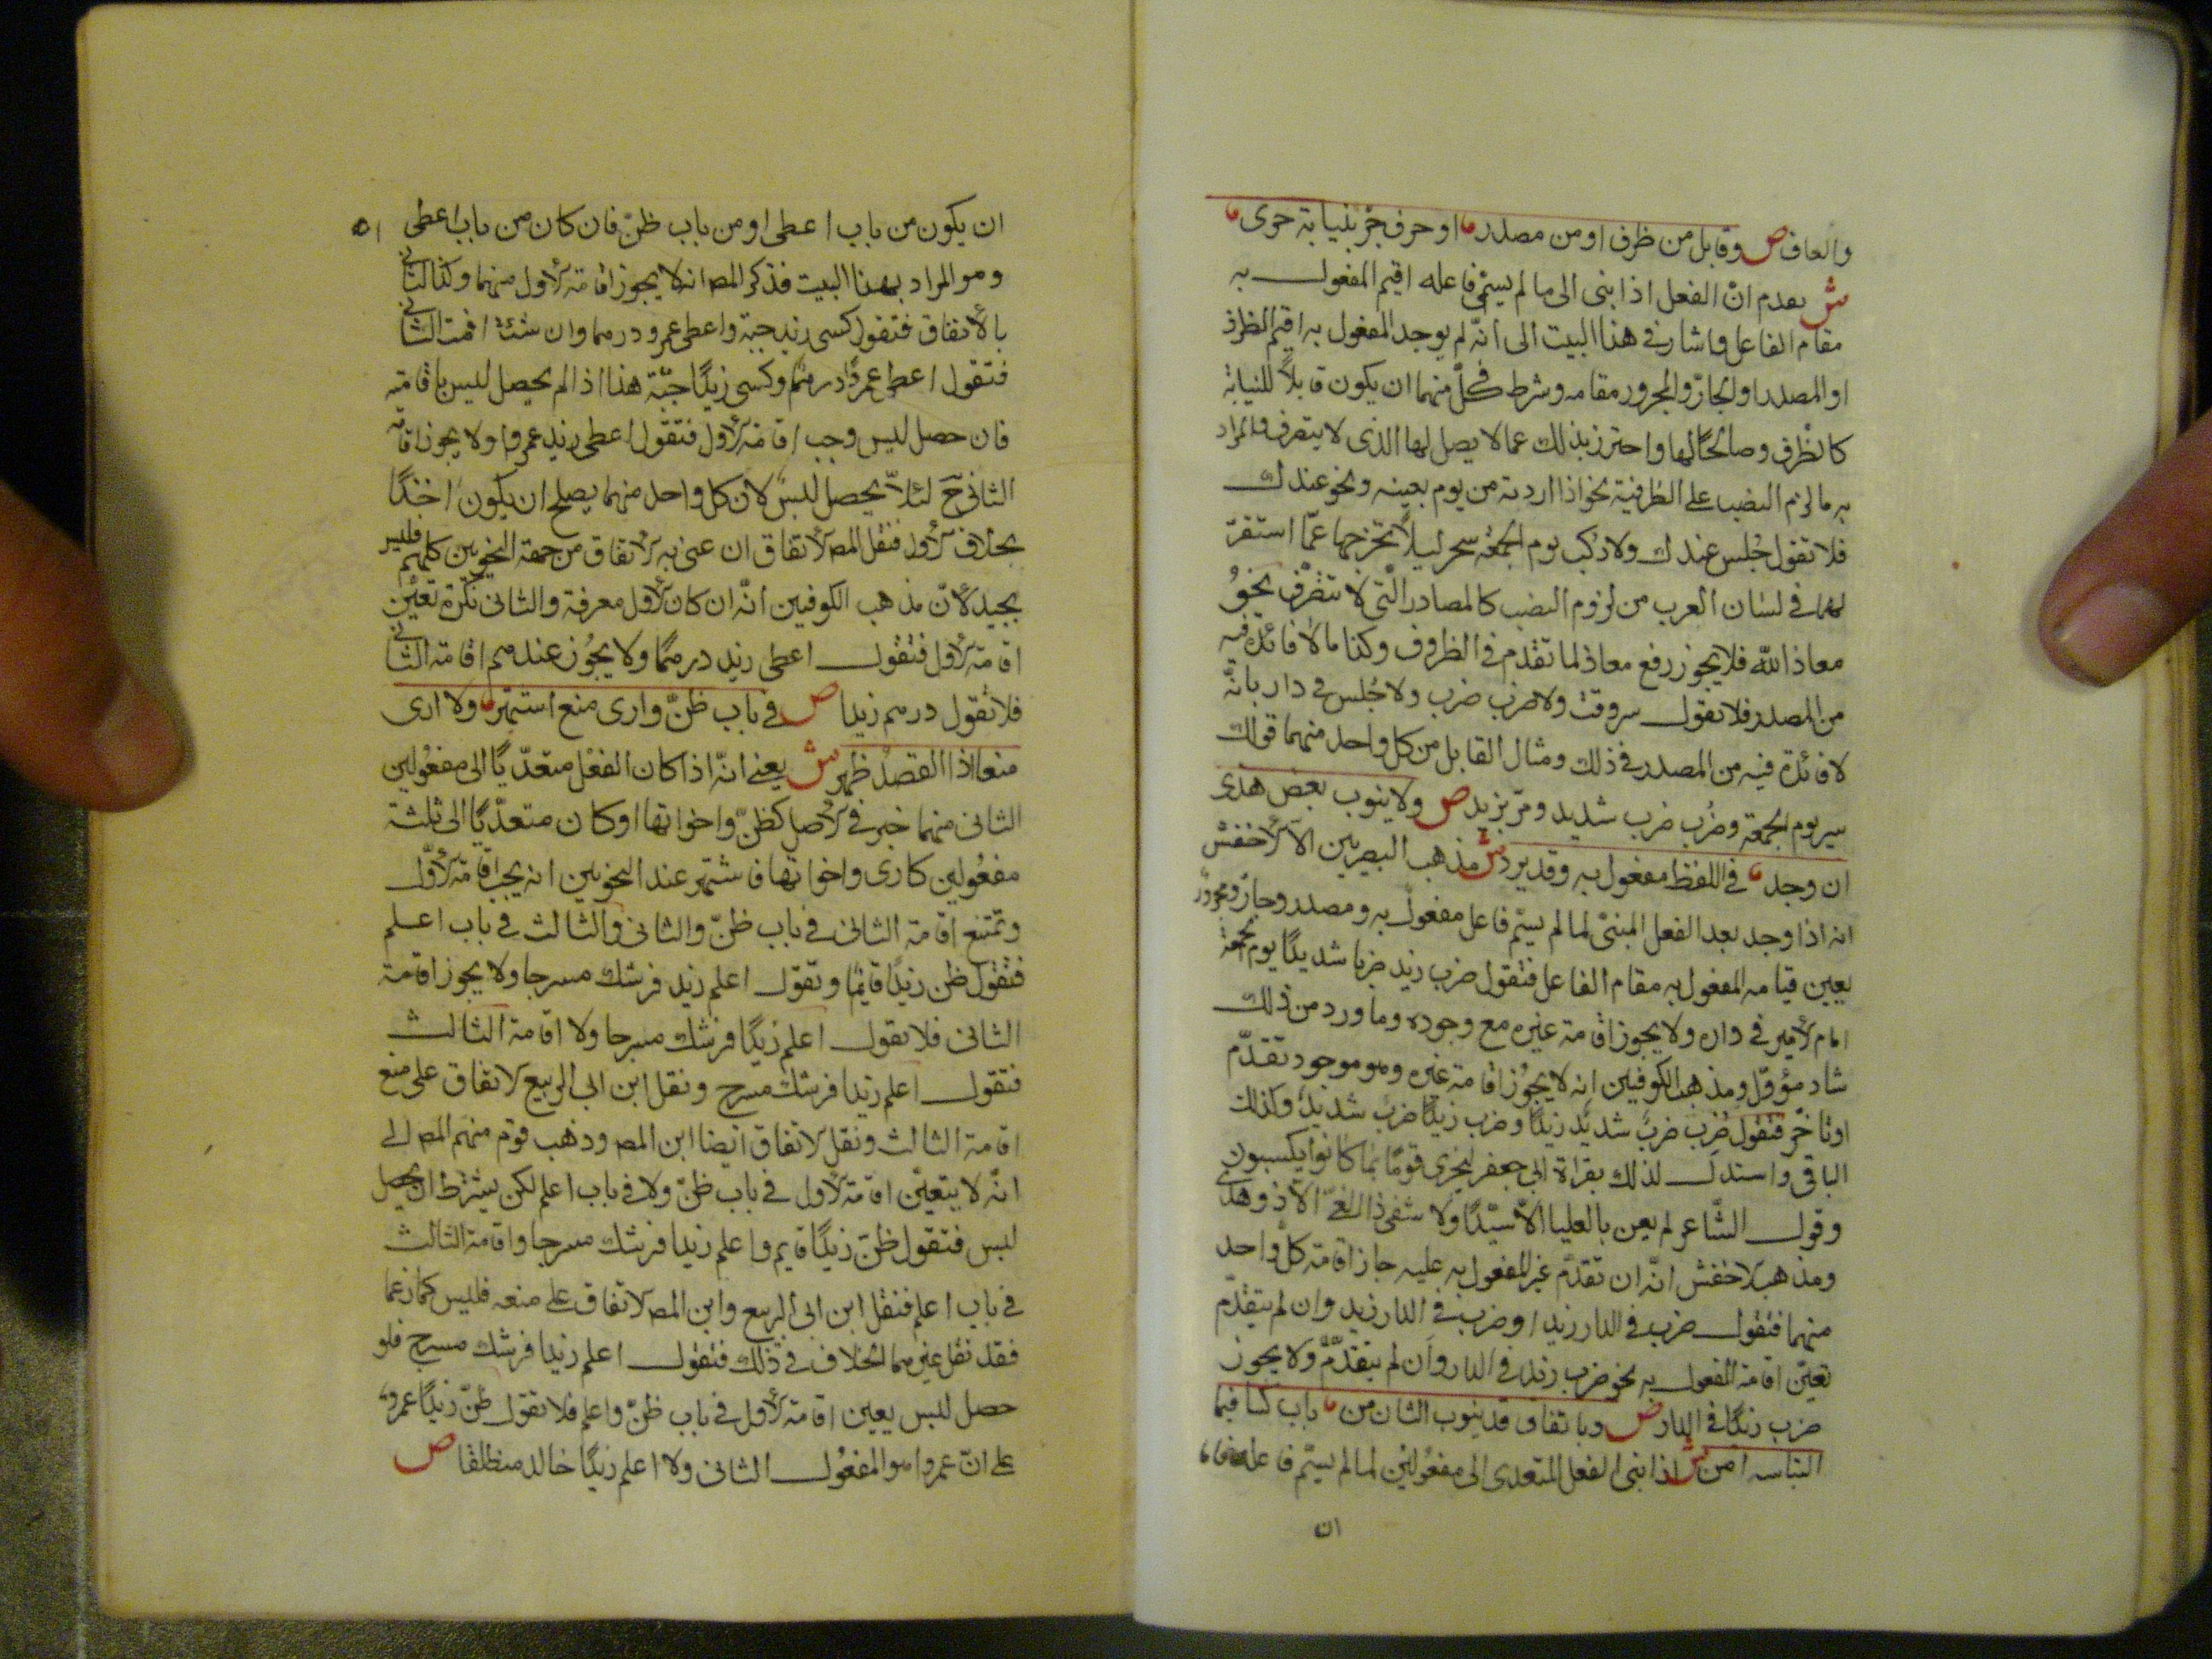 والعاف ص وقابل من ظرف او من مصدر او حرف جر بنيابة حرى
ش تقدم ان الفعل اذا بنى الى ما لم يسم فاعله اقيم المفعول به
مقام الفاعل واشار فى هذا البيت الى انه لم يوجد المفعول به اقيم الظرف
او المصدر او الجار والمجرور مقامه وشرط فى كل منهما ان يكون قابلا للنيابة
كالظرف وصالحا لها واحترز بذلك عما لا يصل لها الذى لا يتصرف والمراد
به ما لزم النصب على الظرفية نحو اذا اردته من يوم بعينه ونحو عندك
فلا تقول جلس عندك ولا ركب يوم الجمعة سحر ليلا تخرجها عما استقر
لهما فى لسان العرب من لزوم النصب كالمصادر التى لا تتصرف نحو
معاذ الله فلا يجوز رفع معاذ لما تقدم فى الظروف وكذا ما لا فائدة فيه
من المصدر فلا تقول سر وقت ولا ضرب ضرب ولا جلس فى دار بانه
لا فائدة فيه من المصدر فى ذلك ومثال القابل من كل واحد منهما قولك
سير يوم الجمعة وضرب ضرب شديد ومر بزيد ص ولا ينوب بعض هذى
ان وجد فى اللفظ مفعول به وقد يرد ش مذهب البصريين الا الاخفش
انه اذا وجد بعد الفعل المبنى لما لم يسم فاعل مفعول به ومصدر وجار ومجرور
يعين قيامه المفعول به مقام الفاعل فتقول ضرب زيد ضربا شديدا يوم الجمعة
امام الامير فى داره ولا يجوز اقامة غيره مع وجوده وما ورد من ذلك
شاد مؤول ومذهب الكوفيين انه لا يجوز اقامة غيره وهو موجود تقدم
او تاخر فتقول ضرب ضرب شديد زيدا وضرب زيدا ضرب شديد وكذلك
الباقى واستدل لذلك بقراة ابى جعفر ليجزى قوما بما كانوا يكسبون
وقول الشاعر لم يعن بالعليا الا سيدا ولا شفى ذا الغى الا ذو هدى
ومذهب الاخفش انه ان تقدم غير المفعول به عليه جاز اقامة كل واحد
منهما فتقول ضرب فى الدار زيدا وضرب فى الدار زيد وان لم يتقدم
تعين اقامة المفعول به نحو ضرب زيد فى الدار وان لم يتقدم ولا يجوز
ضرب زيدا فى الدار ص وباتفاق قد ينوب الثان من باب كسا فيما
التباسه امن ش اذا بنى الفعل المتعدى الى مفعولين لما لم يسم فاعله فاما
ان
٥١
ان يكون من باب اعطى او من باب ظن فان كان من باب اعطى
وهو المراد بهذا البيت فذكر المص انه لا يجوز اقامة الاول منهما وكذا الثانى
بالاتفاق فتقول كسى زيد جبة واعطى عمرو درهما وان شئت اقمت الثانى
فتقول اعطى عمرا درهم وكسى زيدا جبة هذا اذا لم يحصل لبس باقامته
فان حصل لبس وجب اقامة الاول فتقول اعطى زيد عمروا ولا يجوز اقامة
الثانى ح لئلا يحصل لبس لان كل واحد منهما يصلح ان يكون اخذا
بخلاف الاول فنقل المص الاتفاق ان عنى به الاتفاق من جهة النحويين كلهم فليس
بجيد لان مذهب الكوفيين انه ان كان الاول معرفة والثانى نكرة تعين
اقامة الاول فتقول اعطى زيد درهما ولا يجوز عندهم اقامة الثانى
فلا تقول درهم زيدا ص فى باب ظن وارى منع اشتهر ولا ارى
منعا اذا القصد ظهر ش يعنى انه اذا كان الفعل متعديا الى مفعولين
الثانى منهما خبر فى الاصل كظن واخواتها او كان متعديا الى ثلثة
مفعولين كارى واخواتها فاشتهر عند النحويين انه يجب اقامة الاول
وتمتنع اقامة الثانى فى باب ظن والثانى والثالث فى باب اعلم
فتقول ظن زيدا قائما وتقول اعلم زيد فرسك مسرجا ولا يجوز اقامة
الثانى فلا تقول اعلم زيدا فرسك مسرجا ولا اقامة الثالث
فتقول اعلم زيدا فرسك مسرج ونقل ابن ابى الربيع الاتفاق على منع
اقامة الثالث ونقل الاتفاق ايضا ابن المص وذهب قوم منهم المص الى
انه لا يتعين اقامة الاول فى باب ظن ولا فى باب اعلم لكن يشترط ان يحصل
لبس فتقول ظن زيدا قايم واعلم زيدا فرسك مسرجا واقامة الثالث
فى باب اعلم فنقل ابن ابى الربيع وابن المص الاتفاق على منعه فليس كما زعما
فقد نقل غيرهما الخلاف فى ذلك فتقول اعلم زيدا فرسك مسرج فلو
حصل لبس يعين اقامة الاول فى باب ظن واعلم فلا تقول ظن زيدا عمرو
على ان عمروا هو المفعول الثانى ولا اعلم زيدا خالد منطلقا ص